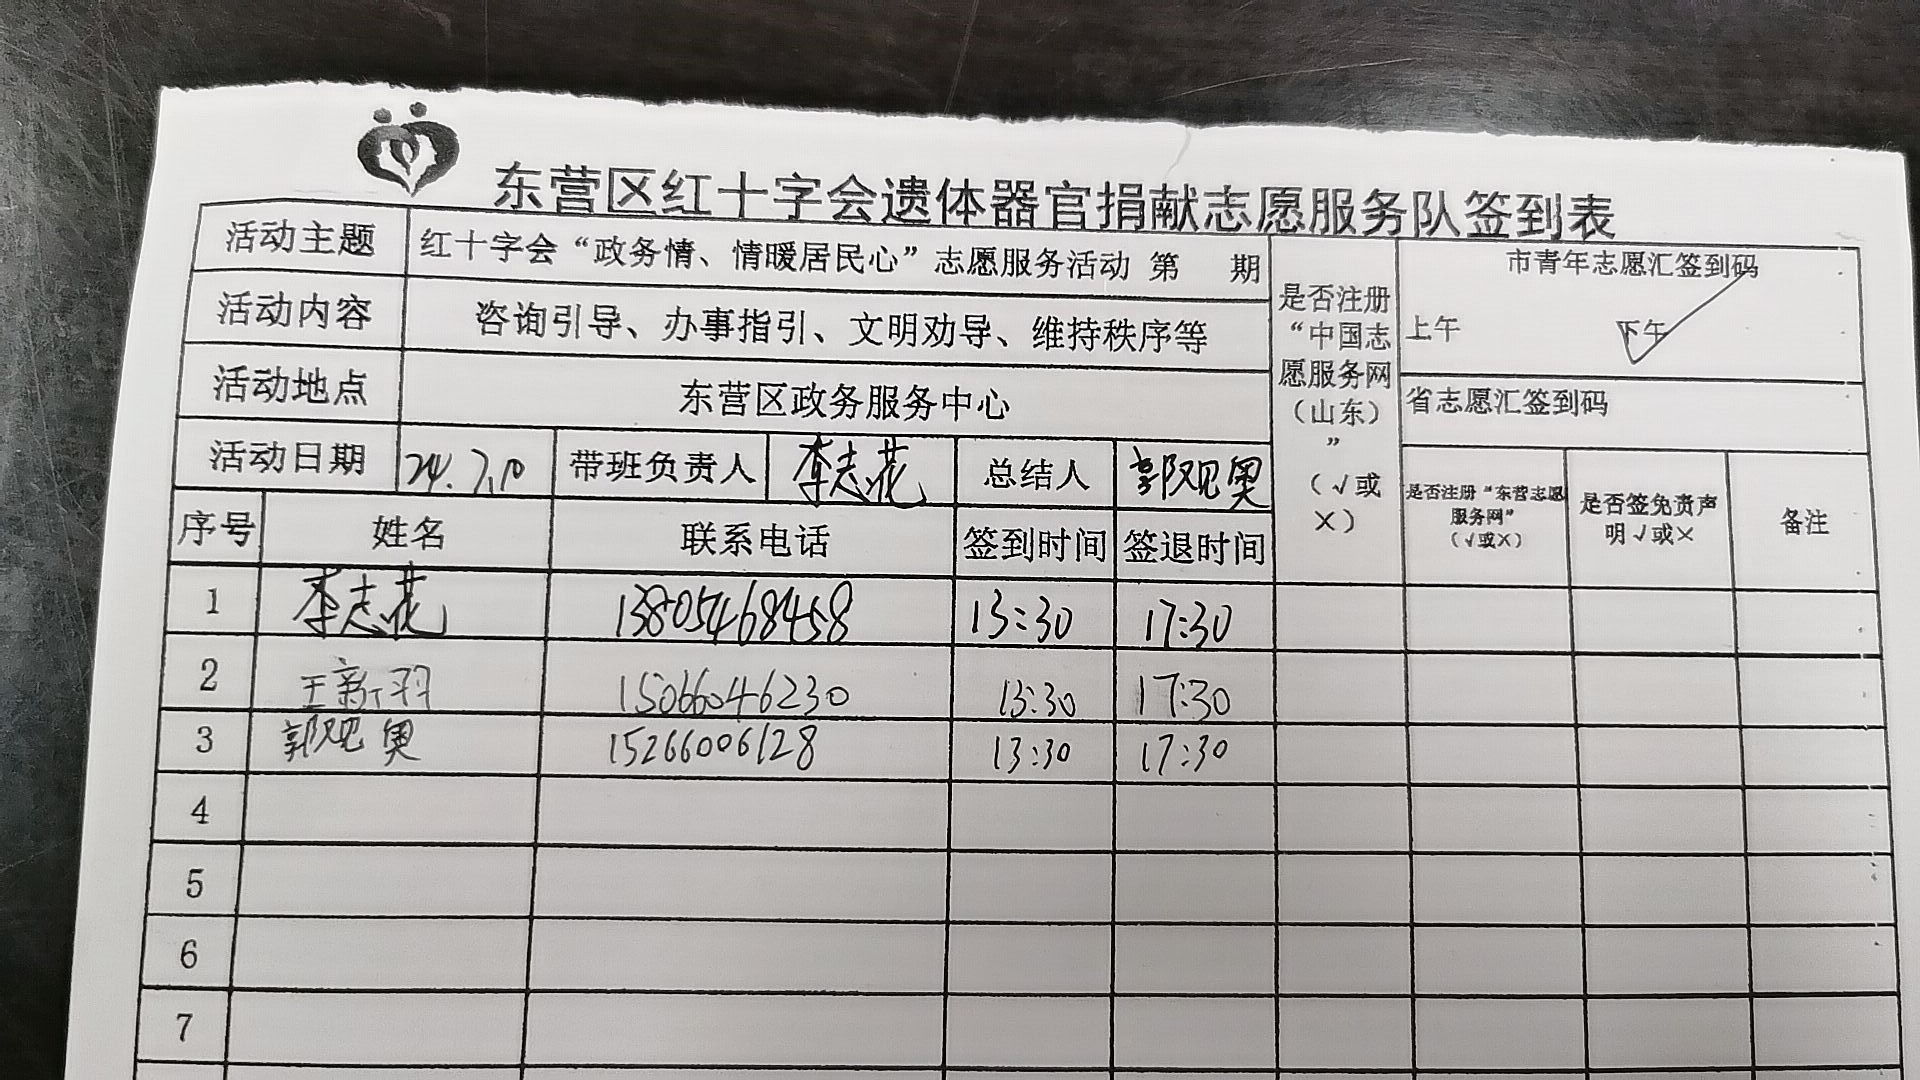 东营区红十字会遗体器官捐献志愿服务队签到表
活动主题 红十字会“政务情、情暖居民心”志愿服务活动 第 期
活动内容 咨询引导、办事指引、文明劝导、维持秩序等
活动地点 东营区政务服务中心
活动日期 24.7.10 带班负责人 李志花 总结人 郭观奥
是否注册
“中国志
愿服务网
（山东）
”
（√或
×）
市青年志愿汇签到码
上午 下午
省志愿汇签到码
序号 姓名 联系电话 签到时间 签退时间
是否注册“东营志愿
服务网”
（√或×）
是否签免责声
明√或×
备注
1 李志花 13805468458 13:30 17:30
2 王新羽 15066046230 13:30 17:30
3 郭观奥 15266006128 13:30 17:30
4
5
6
7